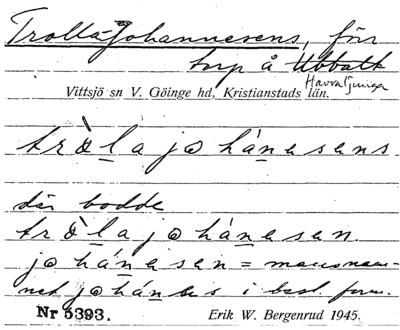 Trolla-Johannesens, förr
torp å Ubbalt
Havraljunga
Vittsjö sn V. Göinge hd, Kristianstads län.
trò̱la jo há̱nesens
där bodde
trò̱la jo há̱nesen.
jo há̱nesen = mansnam-
net johánes i best. form.
Nr 5393. Erik W. Bergenrud 1945.